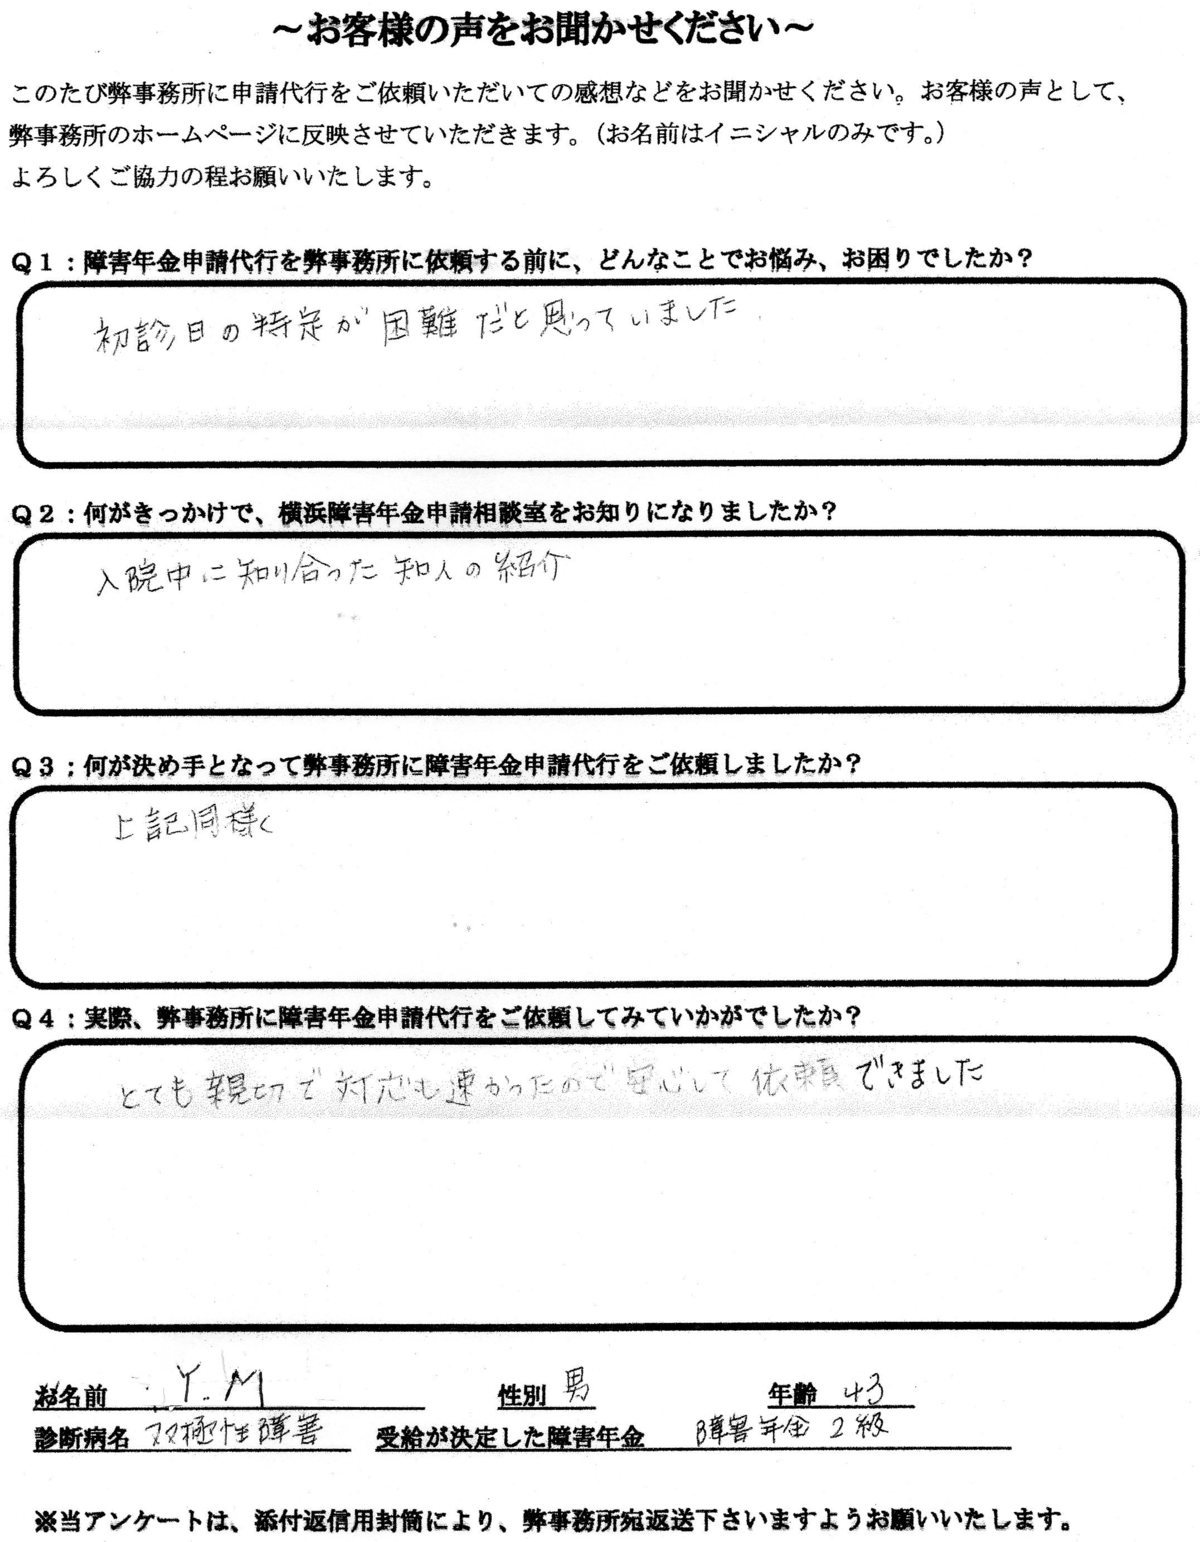 ～お客様の声をお聞かせください～
このたび弊事務所に申請代行をご依頼いただいての感想などをお聞かせください。お客様の声として、
弊事務所のホームページに反映させていただきます。（お名前はイニシャルのみです。）
よろしくご協力の程お願いいたします。
Ｑ１：障害年金申請代行を弊事務所に依頼する前に、どんなことでお悩み、お困りでしたか？
初診日の特定が困難だと思っていました.
Ｑ２：何がきっかけで、横浜障害年金申請相談室をお知りになりましたか？
入院中に知り合った知人の紹介
Ｑ３：何が決め手となって弊事務所に障害年金申請代行をご依頼しましたか？
上記同様く
Ｑ４：実際、弊事務所に障害年金申請代行をご依頼してみていかがでしたか？
とても親切で対応も速かったので安心して依頼できました
お名前 Y.M 性別 男 年齢 43
診断病名 双極性障害 受給が決定した障害年金 障害年金 2級
※当アンケートは、添付返信用封筒により、弊事務所宛返送下さいますようお願いいたします。